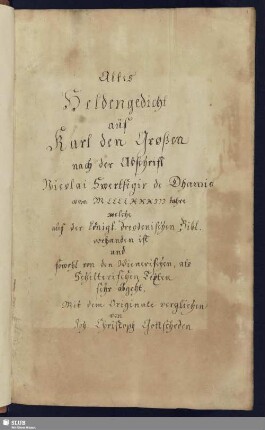 Altes
Heldengedicht
auf
Karl den Großen
nach der Abschrift
Nicolai Swertfegir de Dhamis
vom MCCCCXXXIII Jahre
welche
auf der Königl. Dresdenischen Bibl.
vorhanden ist
und
sowohl von den Wienerischen, als
Schilterischen Texten
sehr abgeht.
Mit dem Originale verglichen
von
Joh. Christoph Gottscheden
SLUB